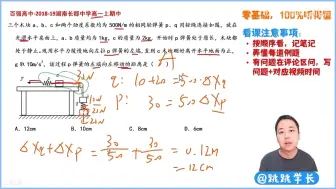 百强高中-2018-19湖南长郡中学高一上期中
零基础，100%听得懂
看课注意事项：
• 按顺序看，记笔记
• 弄懂每道例题
• 有问题在评论区问，写问题+对应视频时间
三个木块a、b、c和两个劲度系数均为500N/m的相同轻弹簧p、q用轻绳连接如图，其中a
放在光滑水平桌面上，a、b质量均为1kg，c的质量为2kg。开始时p弹簧处于原长，木块都
处于静止。现用水平力缓慢地向左拉p弹簧的左端，直到c木块刚好离开水平地面为止，
g取10m/s²，该过程p弹簧的左端向左移动的距离是（ ）
q: 10+20=500·ΔXq
p: 30=500ΔXp
A. 12cm
B. 10cm
C. 8cm
D. 6cm
ΔXq+ΔXp=30/500+30/500=0.12m
=12cm
@跳跳学长